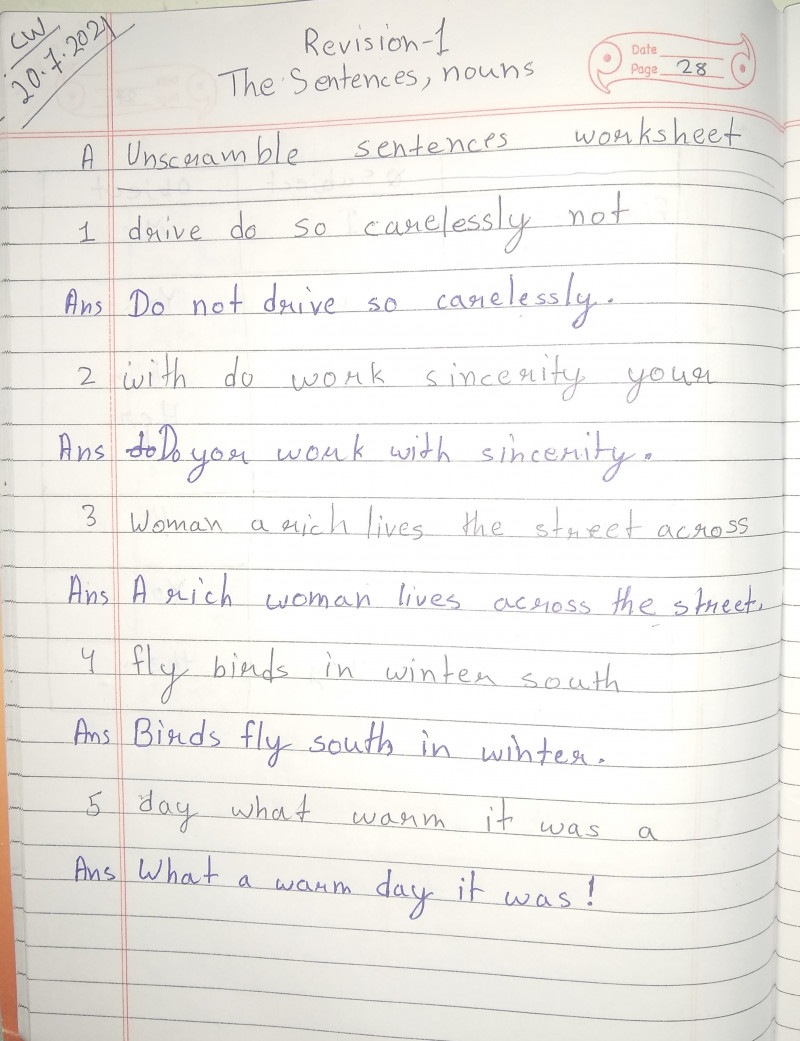 CW
20.7.2021
Revision-1
The Sentences, nouns
Date
Page 28
A Unscramble sentences worksheet
1 drive do so carelessly not
Ans Do not drive so carelessly.
2 with do work sincerity your
Ans Do your work with sincerity.
3 Woman a rich lives the street across
Ans A rich woman lives across the street.
4 fly birds in winter south
Ans Birds fly south in winter.
5 day what warm it was a
Ans What a warm day it was!